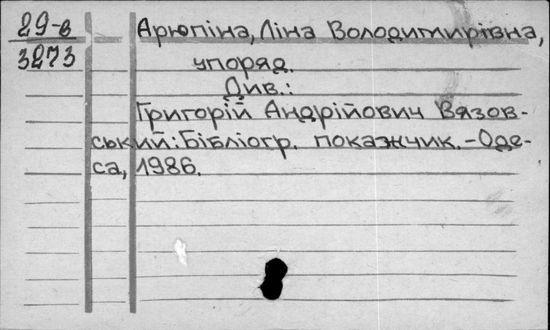 29-в
3273
Арюпіна, Ліна Володимирівна,
упоряд.
Див.:
Григорій Андрійович Вязов-
ський: Бібліогр. показчик. - Оде-
са, 1986.